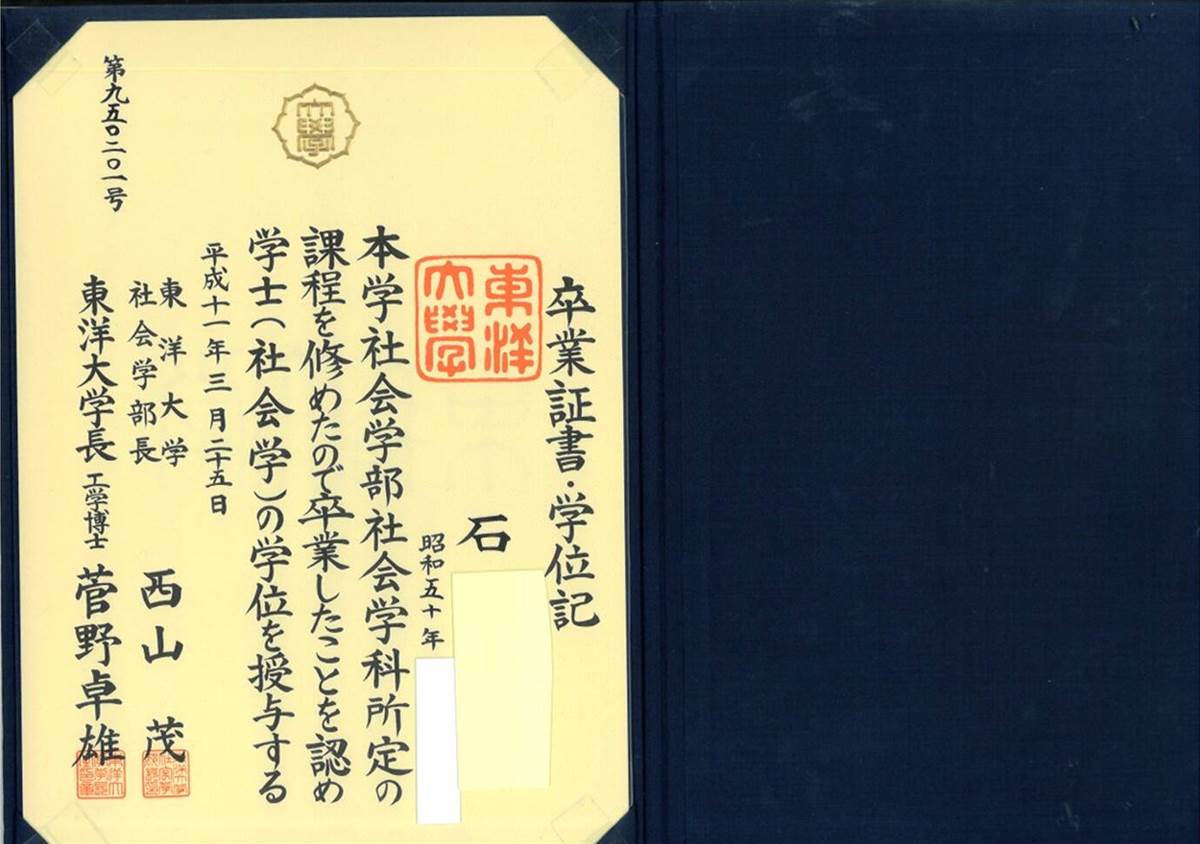 卒業証書・学位記
東洋
大學
石
昭和五十年
本学社会学部社会学科所定の
課程を修めたので卒業したことを認め
学士(社会学)の学位を授与する
平成十一年三月二十五日
東洋大学
社会学部長 西山茂
東洋大学長 工学博士 菅野卓雄
第九五〇二〇一号
大學